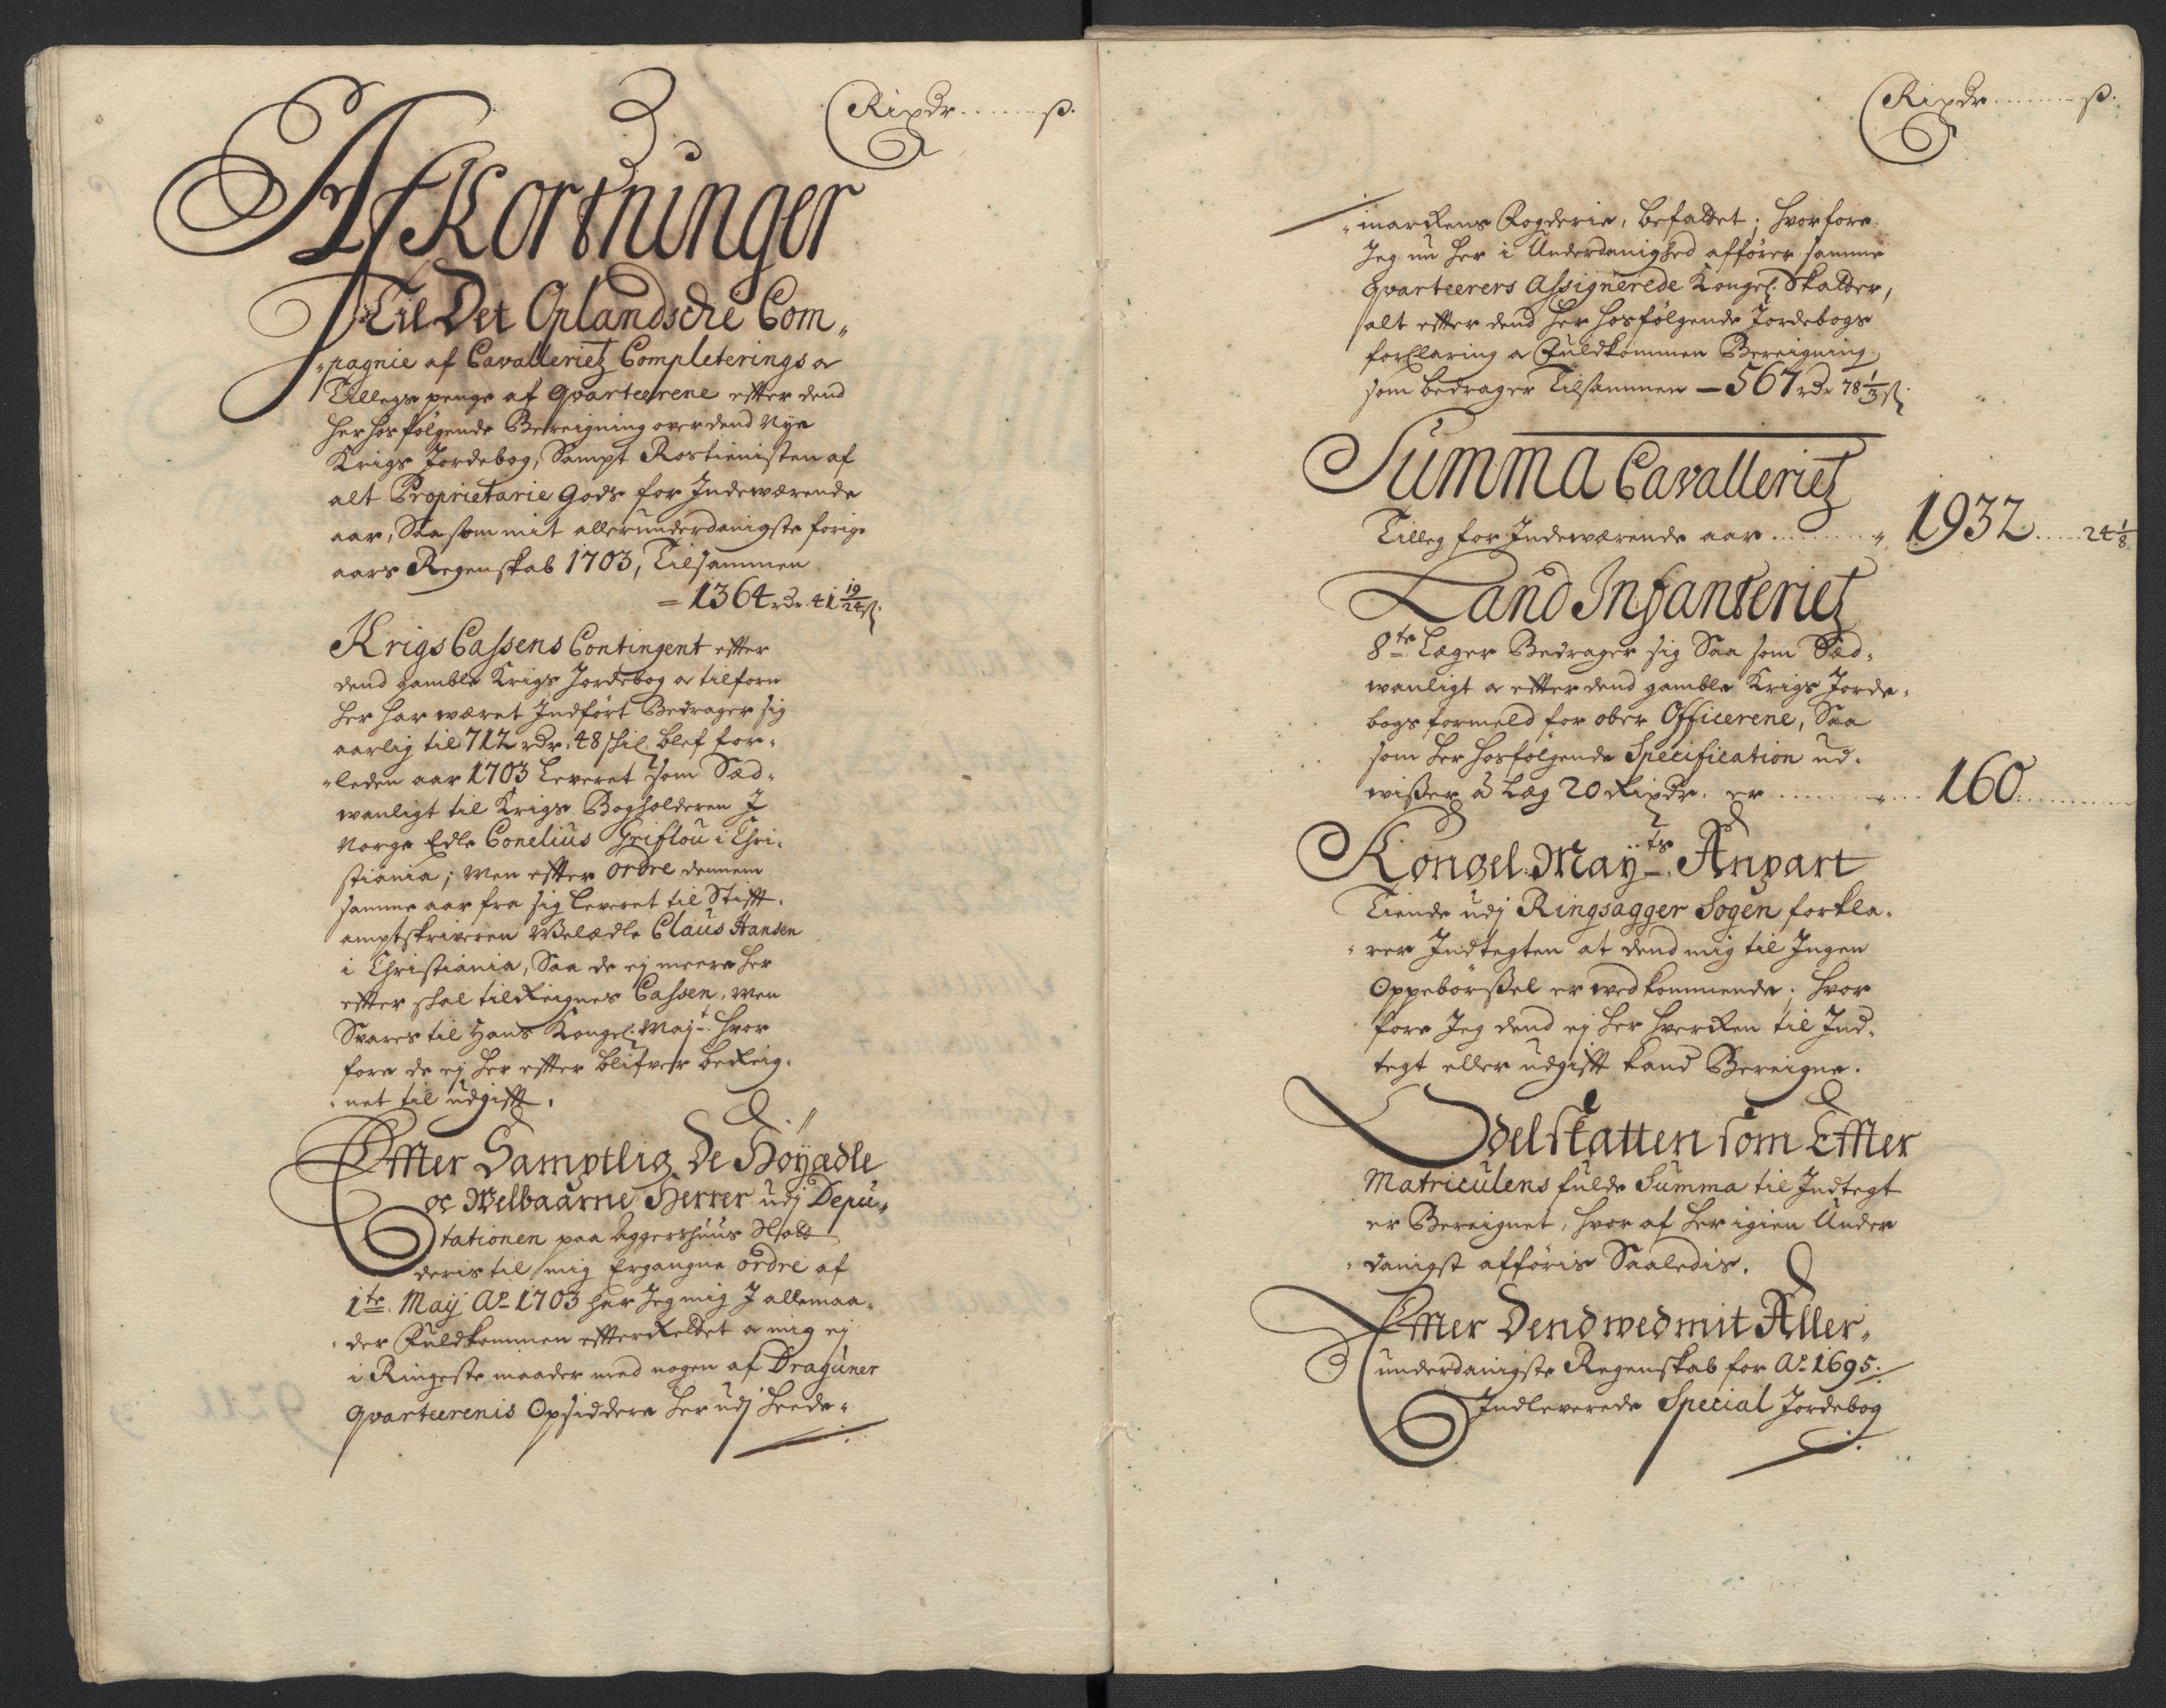 Rixdr ...... ß.
AfKortninger
Til Det Oplandsche Com„
„pagnie af Cavalleriet Completerings oc
Tillegs penge af Qvarteerene efter dend
herhos følgende Bereigning over dend Nye
Krigs Jordebog, Sampt Rostienisten af
alt Proprietarie Gods for Indewærende
aar, Saa som mit allerunderdanigste forige
aars Regenskab 1703, Tilsammen
= 1364 rdr 41 19/24 ß.
Krigs Cassens Contingent efter
dend gamble Krigs Jordebog oc tilforn
her har wæret Indført Bedrager sig
aarlig til 712 rdr. 48 skil. blef for„
„leden aar 1703 leveret som Sæd„
wanligt til Krigs Bogholderen I
Norge Edle Conelius Griflou i Chri„
stiania; Men efter Ordre dennem
samme aar fra sig leveret til Stifft„
amptskriveren Welædle Claus Hansen
i Christiania, Saa de ej meere her
efter skal tilReignes Cassen, Men
Svares til Hans Kongel. Mayt. hvor
fore de ej her efter blifver beReig„
„net til udgifft.
Effter Samptlig De Höyædle
oc Welbaarne Herrer udj Depu„
tationen paa Aggershuus
deris til mig Ergangne Ordre af
1te. Maÿ Ao 1703 har Jeg mig J allemaa„
„der Fuldkommen efterRettet oc mig ej
i Ringeste maader med nogen af Dragüner
Qvarteerenis Opsiddere her udj Heede„
Rixdr ...... ß.
„marckens Fogderie, befattet; hvorfore
Jeg nu her i Underdanighed affører samme
Qvarteerers Assignerede Kongel. Skatter,
alt efter dend her hosfølgende Jordebogs
forklaring oc Fuldkommen Bereigning,
som bedrager Tilsammen – 567 rdr 78 1/3 ß.
Summa Cavalleriet
Tilleg for Indewærende aar ........ „ 1932 ..... 24 1/8
Land Infanteriet
8te. Læger Bedrager sig Saa som Sæd„
wanligt oc efter dend gamble Krigs Jorde„
bogs formeld for ober Officerene, Saa
som her hosfølgende Specification ud„
wißer à Læg 20 Rixdr. er ........ „ ... 160 ........
Kongel: Mayts. Anpart
Tiende udj Ringsagger Sogen forkla„
„rer Indtegten at dend mig til Ingen
Oppebörßel er wedkommende; hvor
fore Jeg dend ej her hverken til Ind„
tegt eller udgifft kand Bereigne.
Odelskatten som Effter
Matriculens fulde Summa til Indtegt
er Bereignet, hvor af her igien Under
„danigst afføris Saaledis.
Effter Dend wed mit Aller„
underdanigste Regenskab for Ao. 1695.
Indleverede Special Jordebog